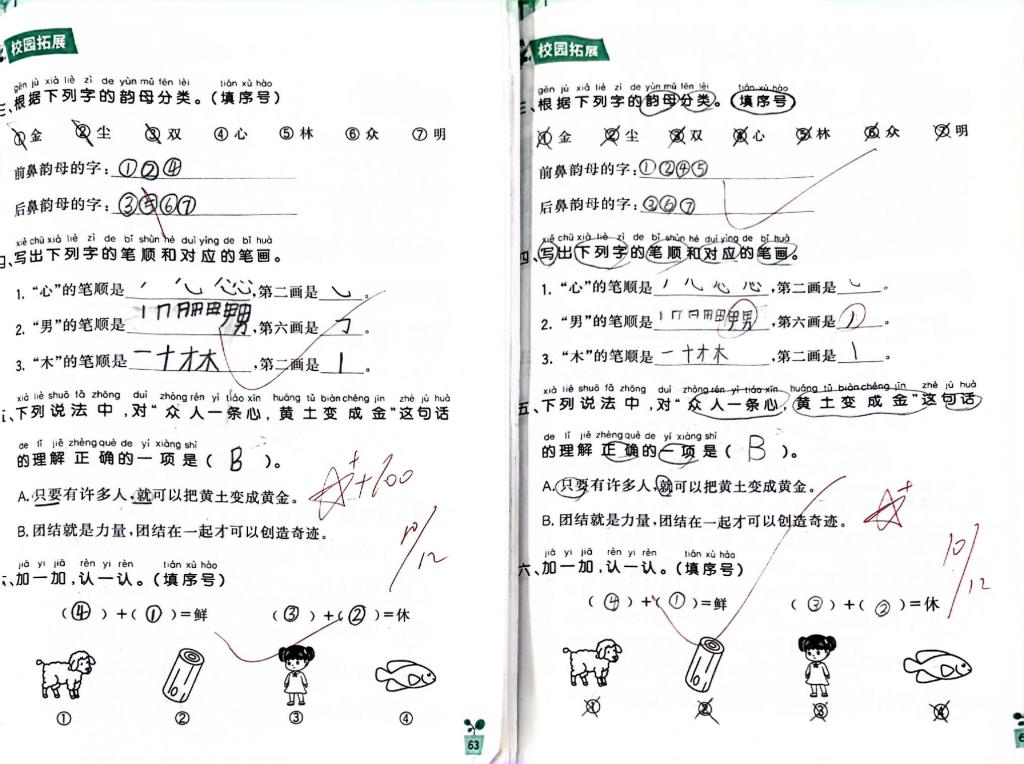 校园拓展
gēn jù xià liè zì de yùn mǔ fēn lèi tián xù hào
三、根据下列字的韵母分类。(填序号)
①金 ②尘 ③双 ④心 ⑤林 ⑥众 ⑦明
前鼻韵母的字:①②④
后鼻韵母的字:③⑤⑥⑦
xiě chū xià liè zì de bǐ shùn hé duì yìng de bǐ huà
四、写出下列字的笔顺和对应的笔画。
1.“心”的笔顺是 ,第二画是 。
2.“男”的笔顺是 ,第六画是 。
3.“木”的笔顺是一十才木,第二画是丨。
xià liè shuō fǎ zhōng duì zhòng rén yì tiáo xīn huáng tǔ biàn chéng jīn zhè jù huà
下列说法中,对“众人一条心,黄土变成金”这句话
de lǐ jiě zhèng què de yí xiàng shì
的理解正确的一项是( B )。
A.只要有许多人,就可以把黄土变成黄金。
B.团结就是力量,团结在一起才可以创造奇迹。
+100
10/12
jiā yi jiā rèn yi rèn tián xù hào
六、加一加,认一认。(填序号)
(④)+(①)=鲜 (③)+(②)=休
① ② ③ ④
63
校园拓展
gēn jù xià liè zì de yùn mǔ fēn lèi tián xù hào
三、根据下列字的韵母分类。(填序号)
①金 ②尘 ③双 ④心 ⑤林 ⑥众 ⑦明
前鼻韵母的字:①②④⑤
后鼻韵母的字:③⑥⑦
xiě chū xià liè zì de bǐ shùn hé duì yìng de bǐ huà
四、写出下列字的笔顺和对应的笔画。
1.“心”的笔顺是 ,第二画是 。
2.“男”的笔顺是 ,第六画是 。
3.“木”的笔顺是一十才木,第二画是丨。
xià liè shuō fǎ zhōng duì zhòng rén yì tiáo xīn huáng tǔ biàn chéng jīn zhè jù huà
五、下列说法中,对“众人一条心,黄土变成金”这句话
de lǐ jiě zhèng què de yí xiàng shì
的理解正确的一项是( B )。
A.只要有许多人,就可以把黄土变成黄金。
B.团结就是力量,团结在一起才可以创造奇迹。
10/12
jiā yi jiā rèn yi rèn tián xù hào
六、加一加,认一认。(填序号)
(④)+(①)=鲜 (③)+(②)=休
① ② ③ ④